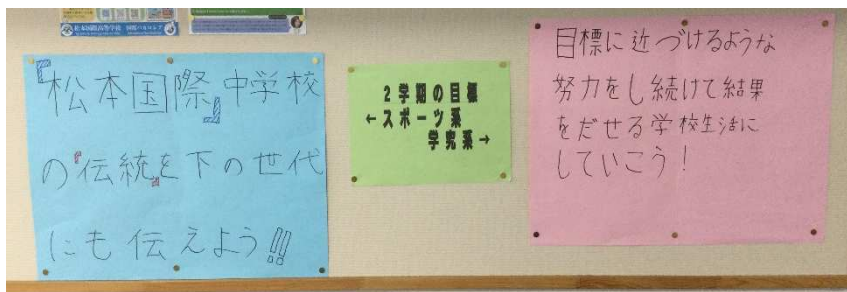 松本国際高等学校
『松本国際』中学校
の『伝統』を下の世代
にも伝えよう!!
2学期の目標
←スポーツ系
学究系→
目標に近づけるような
努力をし続けて結果
をだせる学校生活に
していこう!